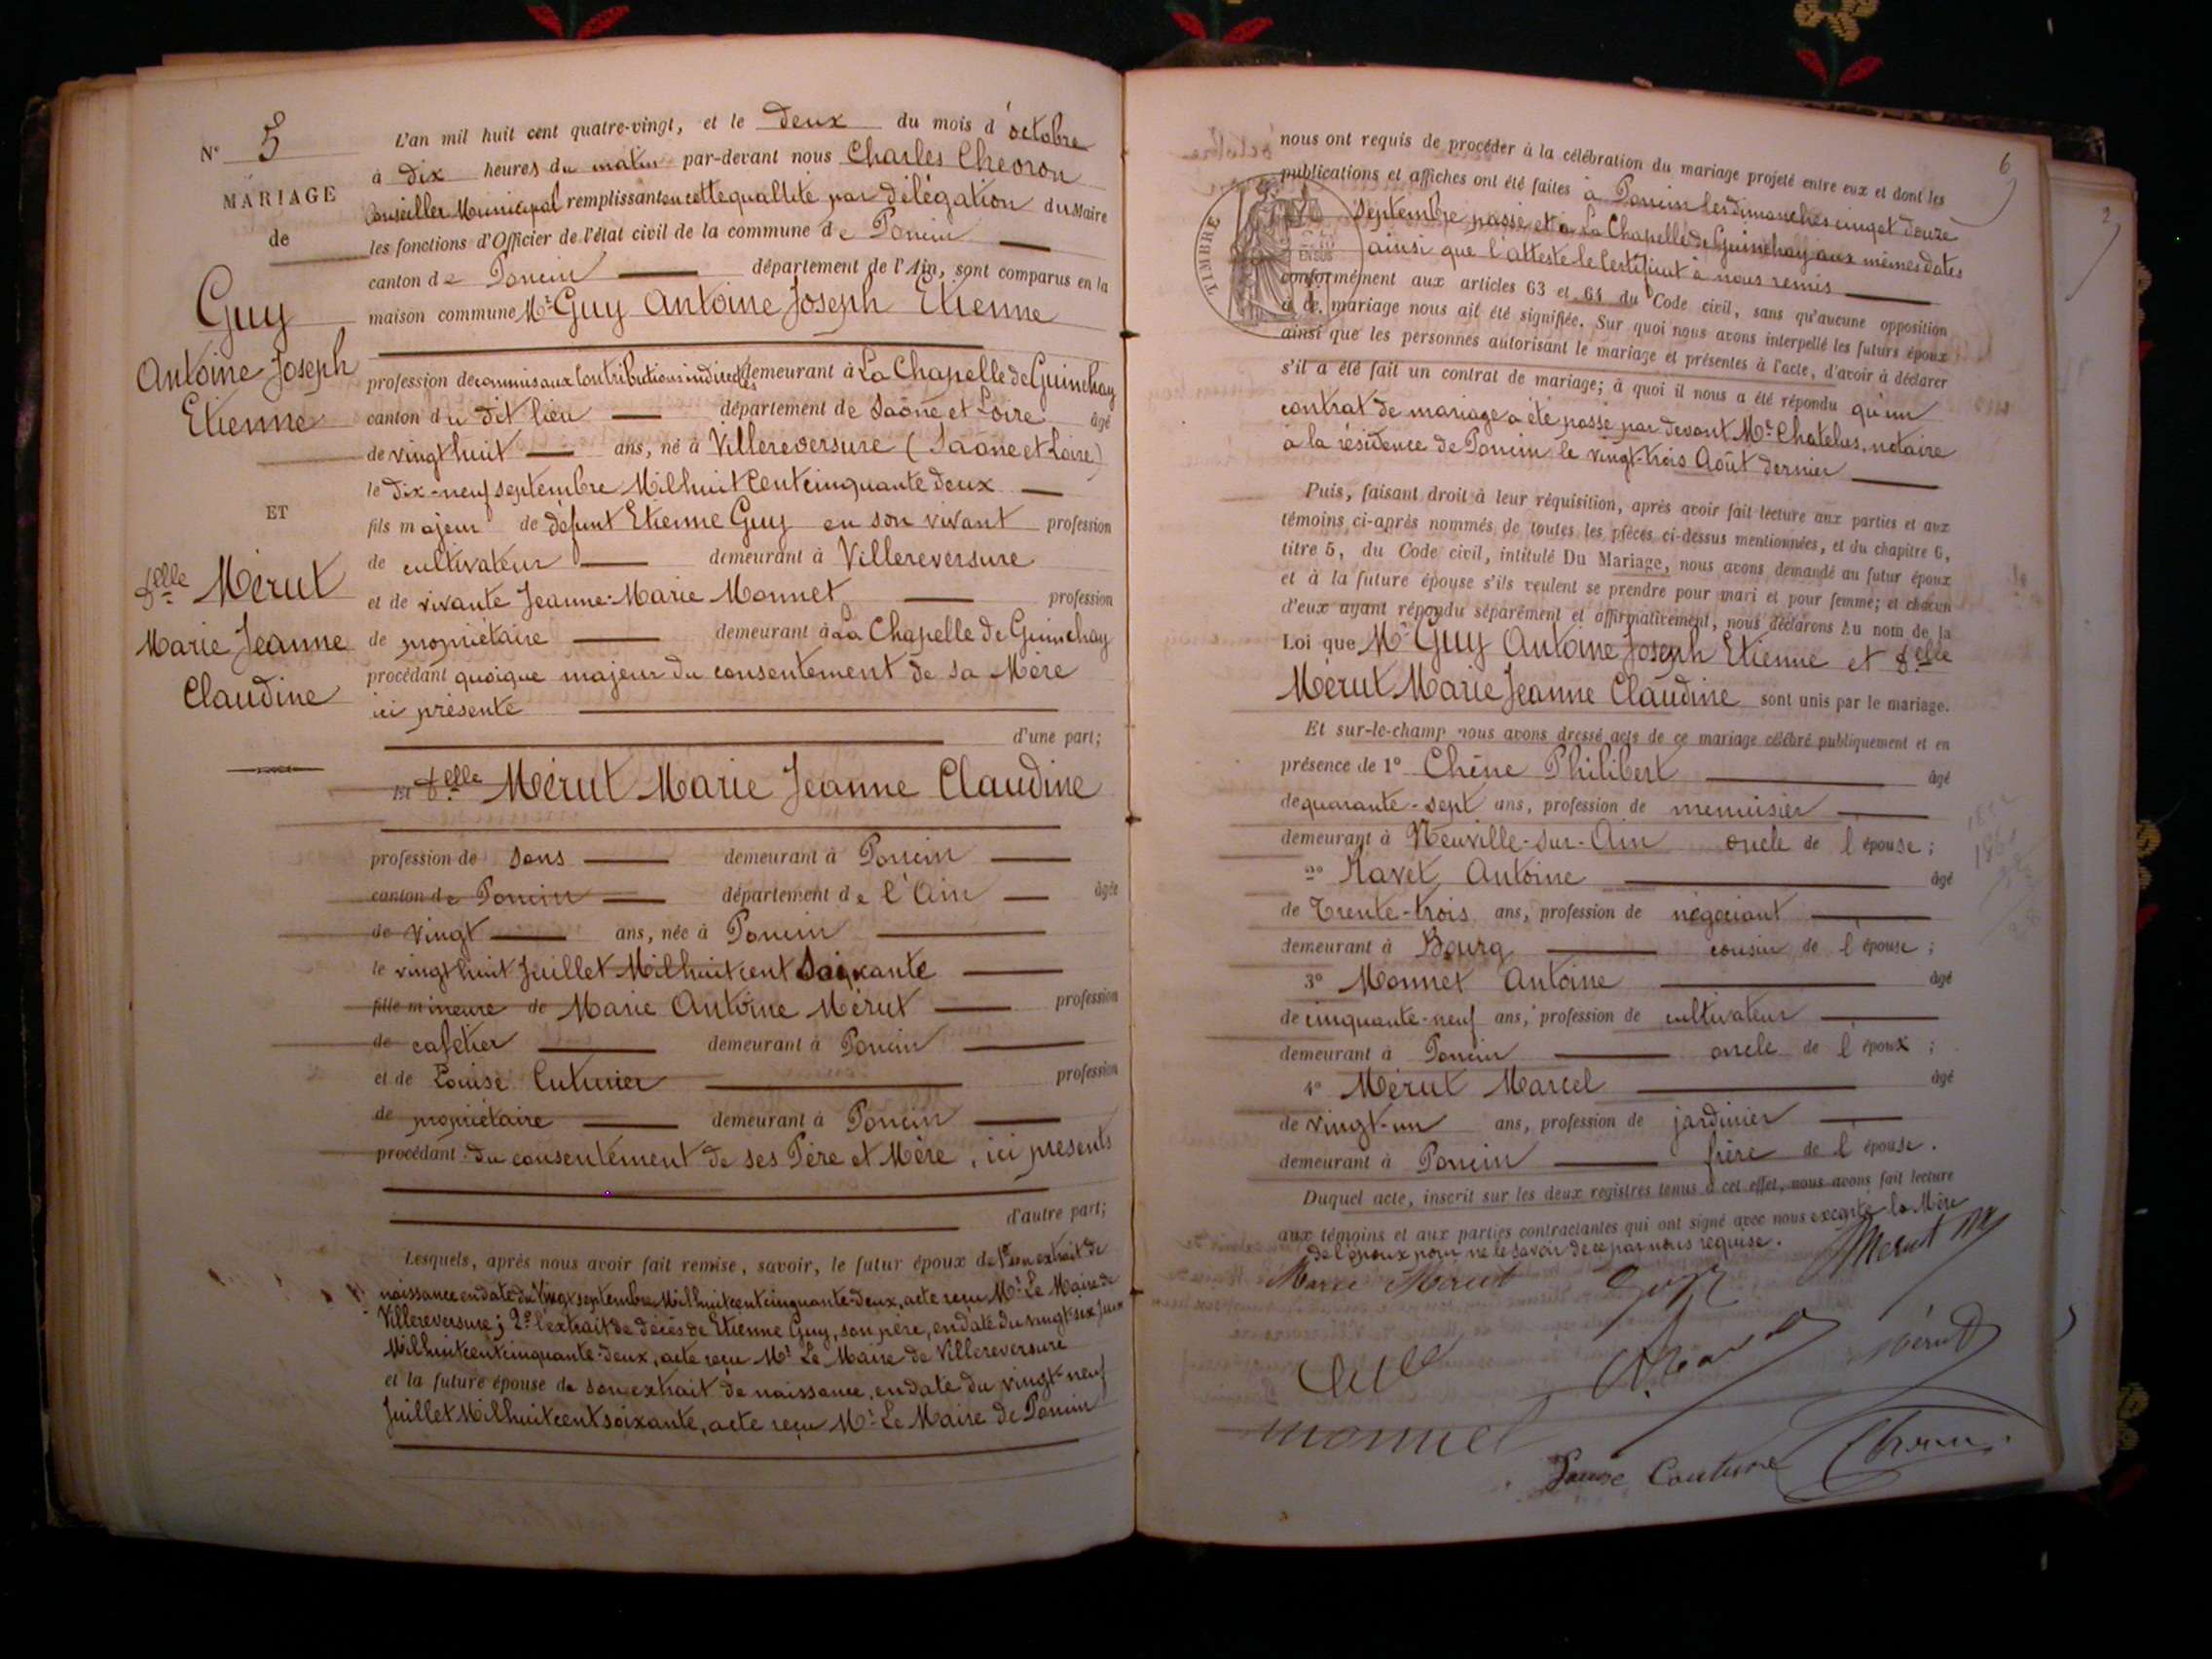 N° 5
MARIAGE
de
Guy
Antoine Joseph
Etienne
ET
Delle Mérut
Marie Jeanne
Claudine
L'an mil huit cent quatre-vingt, et le deux du mois d'octobre
à dix heures du matin par-devant nous Charles Cheoron
Conseiller Municipal remplissant en cette qualité par délégation du Maire
les fonctions d'Officier de l'état civil de la commune de Poncin
canton de Poncin département de l'Ain, sont comparus en la
maison commune Mr Guy Antoine Joseph Etienne
profession de commis aux Contributions indirectes demeurant à La Chapelle de Guinchay
canton du dit lieu département de Saône et Loire âgé
de vingt huit ans, né à Villereversure (Saône et Loire)
le dix-neuf septembre Mil huit cent cinquante deux
fils majeur de defunt Etienne Guy en son vivant profession
de cultivateur demeurant à Villereversure
et de vivante Jeanne-Marie Monnet profession
de propriétaire demeurant à La Chapelle de Guinchay
procédant quoique majeur du consentement de sa Mère
ici présente
d'une part;
Et Delle Mérut Marie Jeanne Claudine
profession de sans demeurant à Poncin
canton de Poncin département de l'Ain âgée
de vingt ans, née à Poncin
le vingt huit Juillet Mil huit cent Soixante
fille mineure de Marie Antoine Mérut profession
de cafetier demeurant à Poncin
et de Louise Cuturier profession
de propriétaire demeurant à Poncin
procédant du consentement de ses Père et Mère, ici présents
d'autre part;
Lesquels, après nous avoir fait remise, savoir, le futur époux de 1° son extrait de
naissance en date du Vingt septembre Mil huit cent cinquante-deux, acte reçu Mr Le Maire de
Villereversure; 2° l'extrait de décès de Etienne Guy, son père, en date du vingt-six Juin
Mil huit cent cinquante-deux, acte reçu Mr Le Maire de Villereversure
et la future épouse de son extrait de naissance, en date du vingt-neuf
Juillet Mil huit cent soixante, acte reçu Mr Le Maire de Poncin
6
2
TIMBRE
EN SUS
nous ont requis de procéder à la célébration du mariage projeté entre eux et dont les
publications et affiches ont été faites à Poncin les dimanches cinq et douze
septembre passé et à La Chapelle de Guinchay aux mêmes dates
ainsi que l'atteste le Certificat à nous remis
conformément aux articles 63 et 64 du Code civil, sans qu'aucune opposition
à ce mariage nous ait été signifiée. Sur quoi nous avons interpellé les futurs époux
ainsi que les personnes autorisant le mariage et présentes à l'acte, d'avoir à déclarer
s'il a été fait un contrat de mariage; à quoi il nous a été répondu qu'un
contrat de mariage a été passé par devant Mr Chatelus, notaire
à la résidence de Poncin le vingt-trois Août dernier
Puis, faisant droit à leur réquisition, après avoir fait lecture aux parties et aux
témoins ci-après nommés de toutes les pièces ci-dessus mentionnées, et du chapitre 6,
titre 5, du Code civil, intitulé Du Mariage, nous avons demandé au futur époux
et à la future épouse s'ils veulent se prendre pour mari et pour femme; et chacun
d'eux ayant répondu séparément et affirmativement, nous déclarons au nom de la
Loi que Mr Guy Antoine Joseph Etienne et Delle
Mérut Marie Jeanne Claudine sont unis par le mariage.
Et sur-le-champ nous avons dressé acte de ce mariage célébré publiquement et en
présence de 1° Chêne Philibert âgé
de quarante-sept ans, profession de menuisier
demeurant à Neuville-sur-Ain oncle de l'épouse;
2° Navet Antoine âgé
de Trente-trois ans, profession de négociant
demeurant à Bourg cousin de l'épouse;
3° Monnet Antoine âgé
de cinquante-neuf ans, profession de cultivateur
demeurant à Poncin oncle de l'époux;
4° Mérut Marcel âgé
de vingt-un ans, profession de jardinier
demeurant à Poncin frère de l'épouse.
Duquel acte, inscrit sur les deux registres tenus à cet effet, nous avons fait lecture
aux témoins et aux parties contractantes qui ont signé avec nous excepté la Mère
de l'époux pour ne le savoir de ce par nous requise.
Marie Mérut Guy Mérut
Mérut
Monnet
Louise Couturie